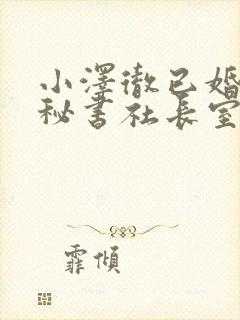 小澤徹已婚
秘書社長室
霏傾